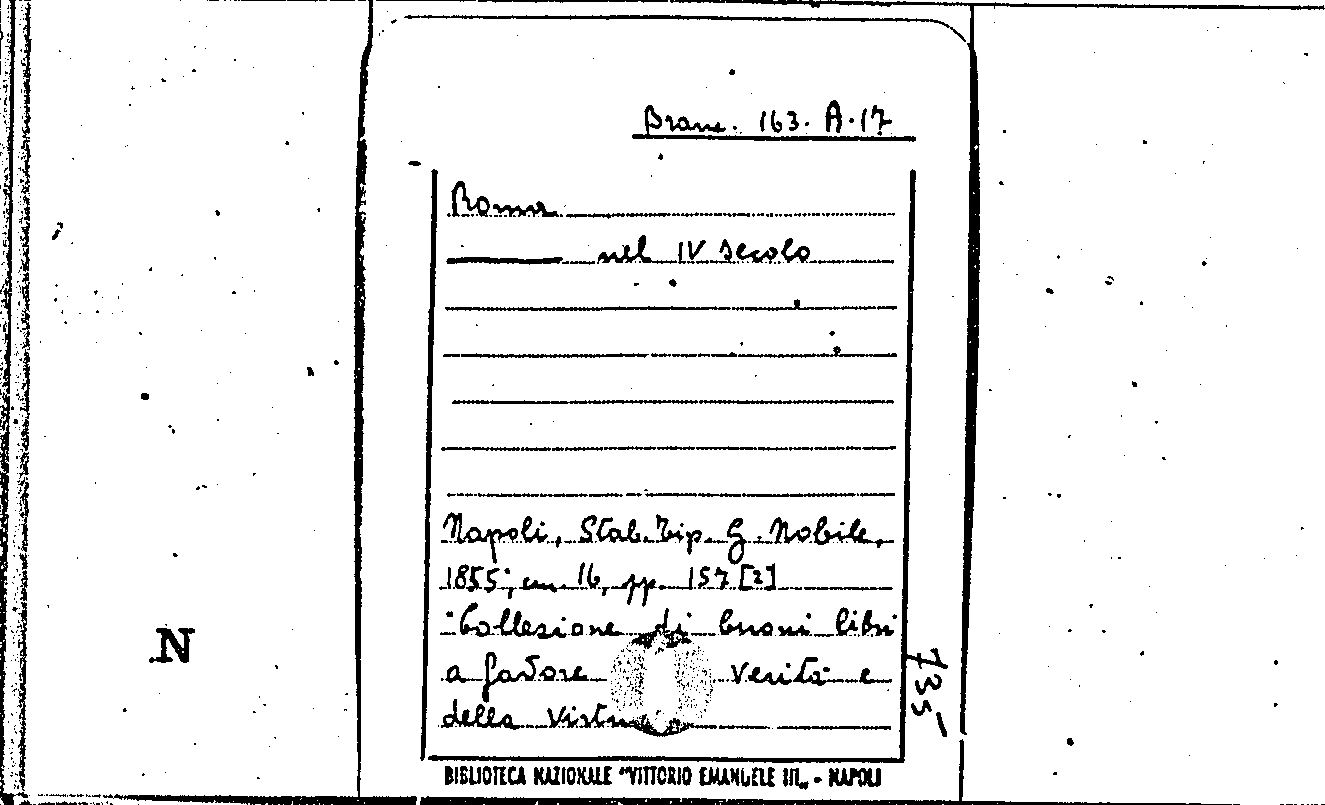 Branc. 163. A. 17
Roma
nel IV secolo
Napoli, Stab. Tip. G. Nobile,
1855; cm. 16, pp. 157 [2]
"Collezione di buoni libri
a favore verità e
della Virtù
735
N
BIBLIOTECA NAZIONALE "VITTORIO EMANUELE III„ - NAPOLI